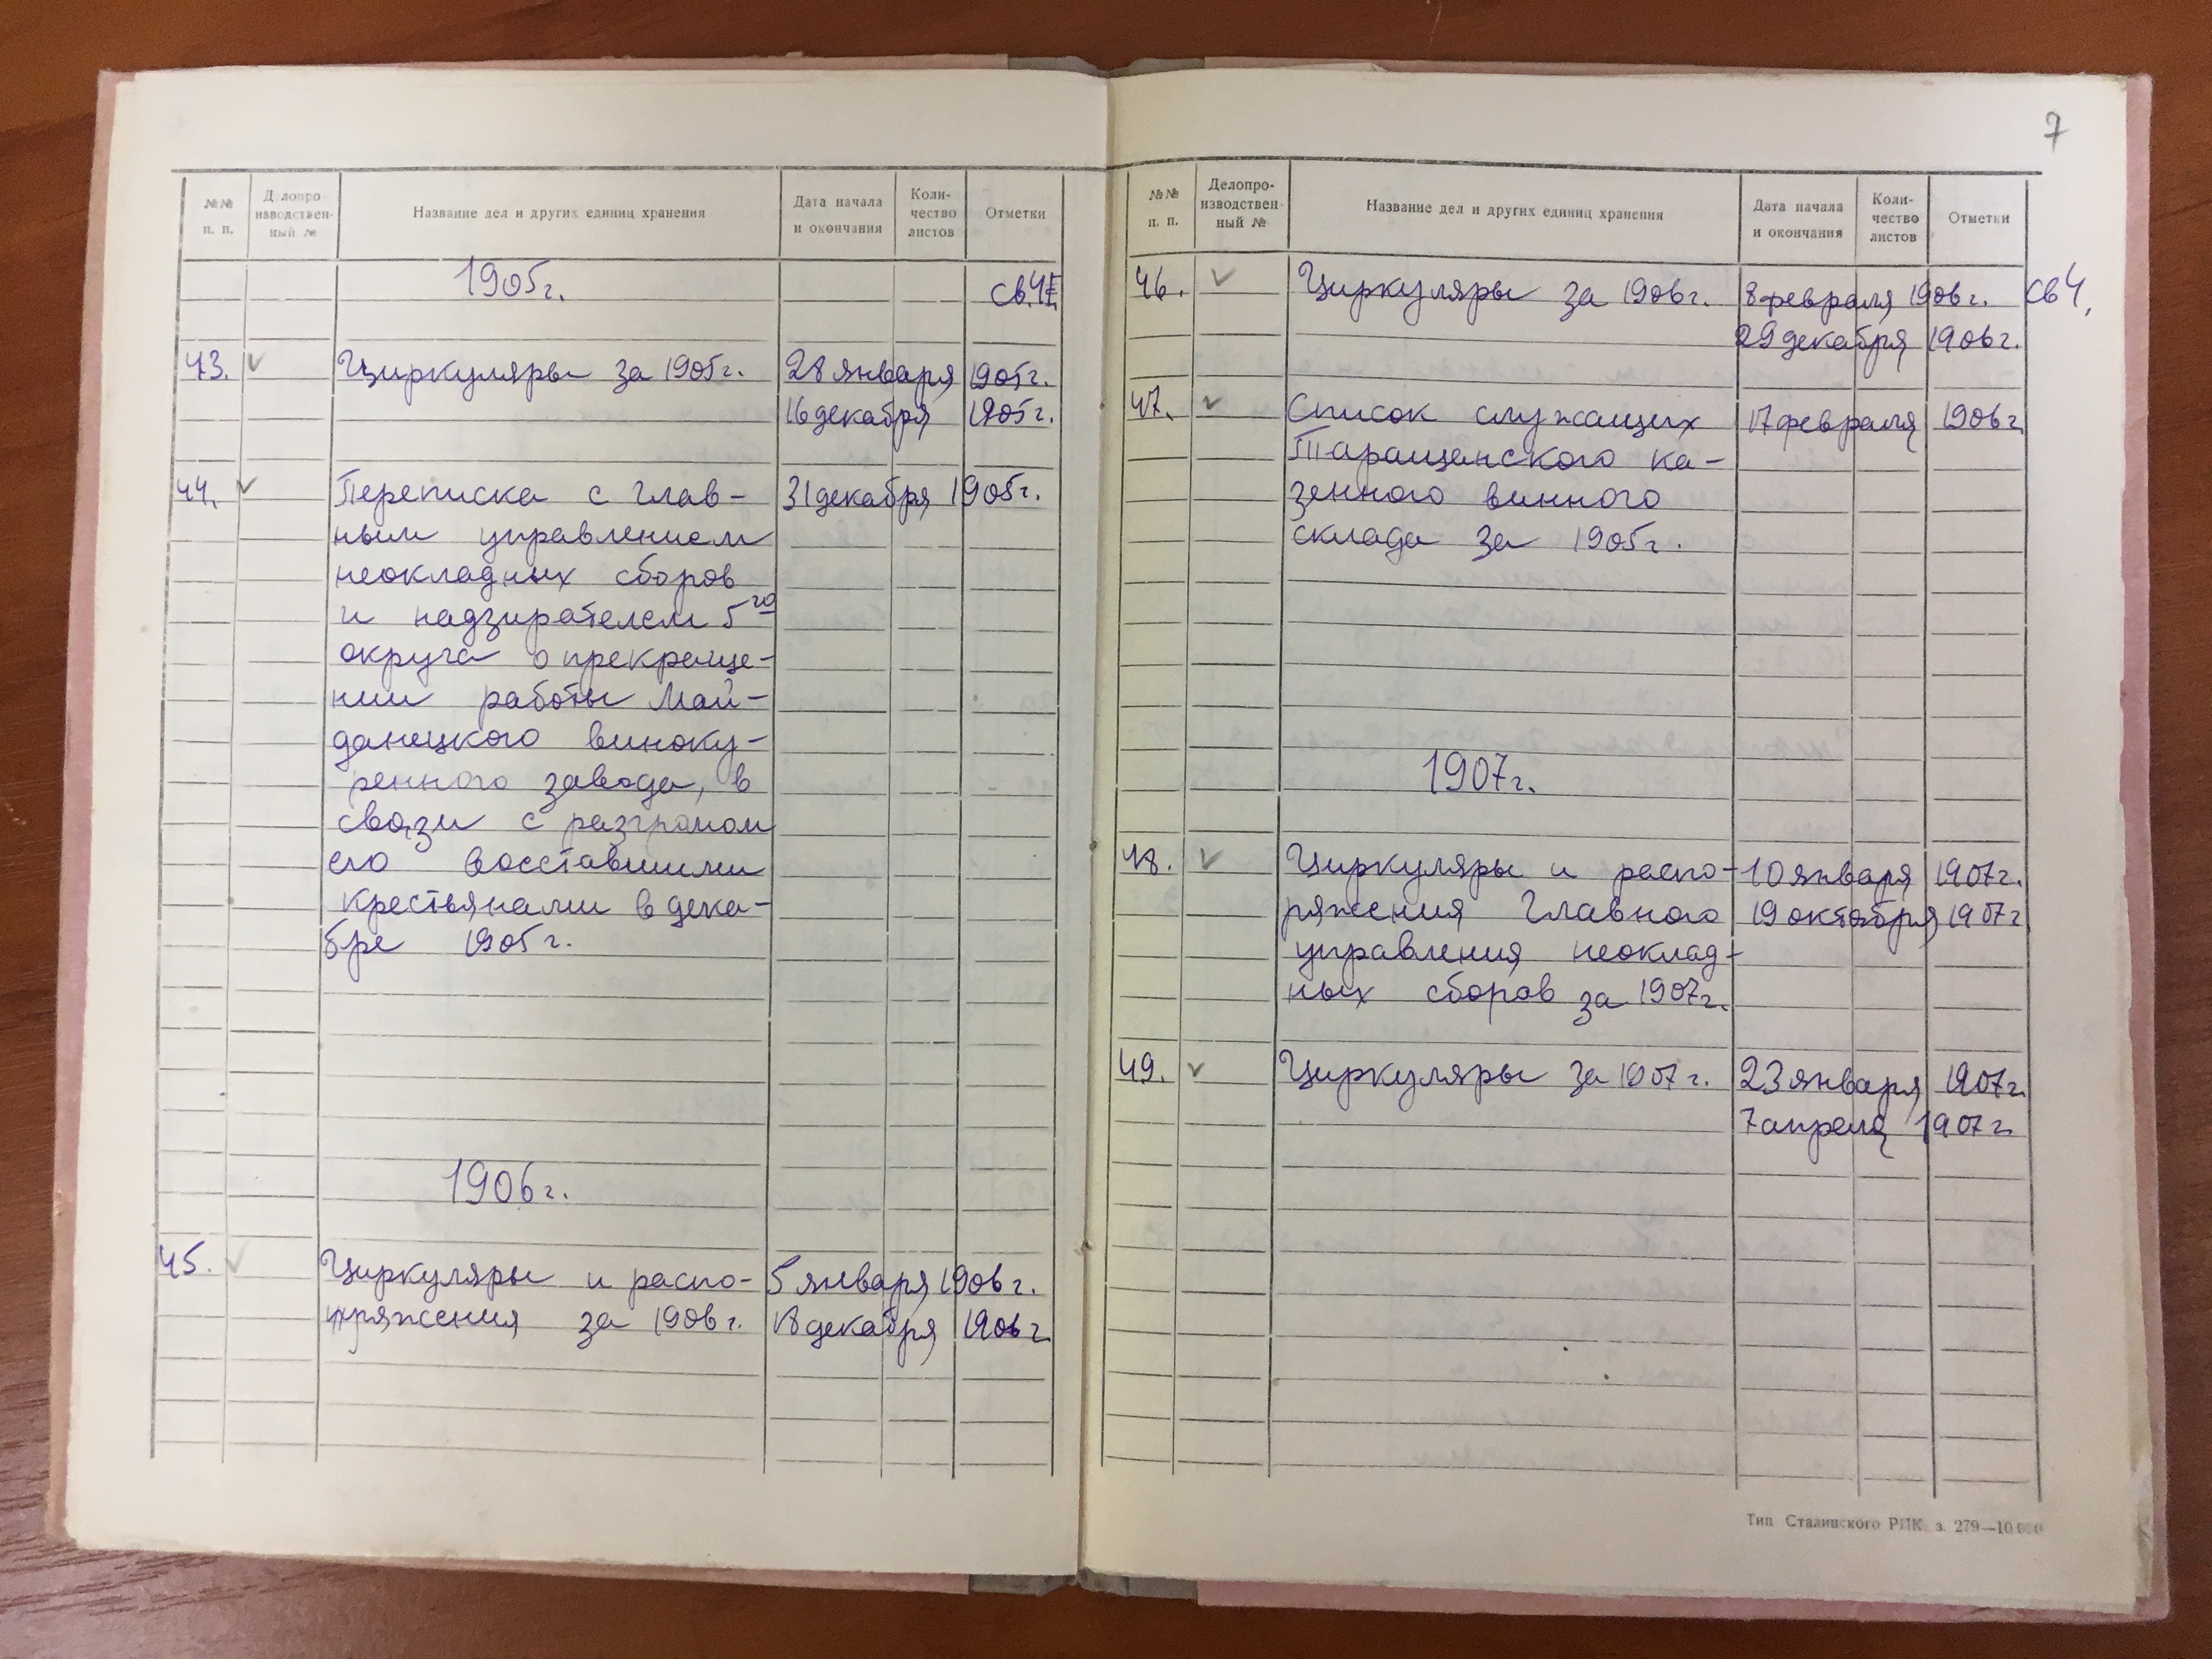 №№ п. п. Делопроизводствен-ный № Название дел и других единиц хранения Дата начала и окончания Коли-чество листов Отметки
1905г.
св.4
43. Циркуляры за 1905г. 28 января 1905г.
16 декабря 1905г.
44. Переписка с Глав- 31 декабря 1905г.
ным управлением
неокладных сборов
и надзирателем 5го
округа о прекраще-
нии работы Май-
данецкого виноку-
ренного завода, в
связи с разгромом
его восставшими
крестьянами в дека-
бре 1905г.
1906г.
45. Циркуляры и распо- 5 января 1906г.
ряжения за 1906г. 18 декабря 1906г
7
№№ п. п. Делопро-изводствен-ный № Название дел и других единиц хранения Дата начала и окончания Коли-чество листов Отметки
46. Циркуляры за 1906г. 8 февраля 1906г. св 4,
29 декабря 1906г.
47. Список служащих 17 февраля 1906г
Таращанского ка-
зенного винного
склада за 1905г.
1907г.
48. Циркуляры и распо- 10 января 1907г.
ряжения Главного 19 октября 1907г
управления неоклад-
ных сборов за 1907г.
49. Циркуляры за 1907г. 23 января 1907г.
7 апреля 1907г.
Тип Сталинского РПК. з. 279—10000